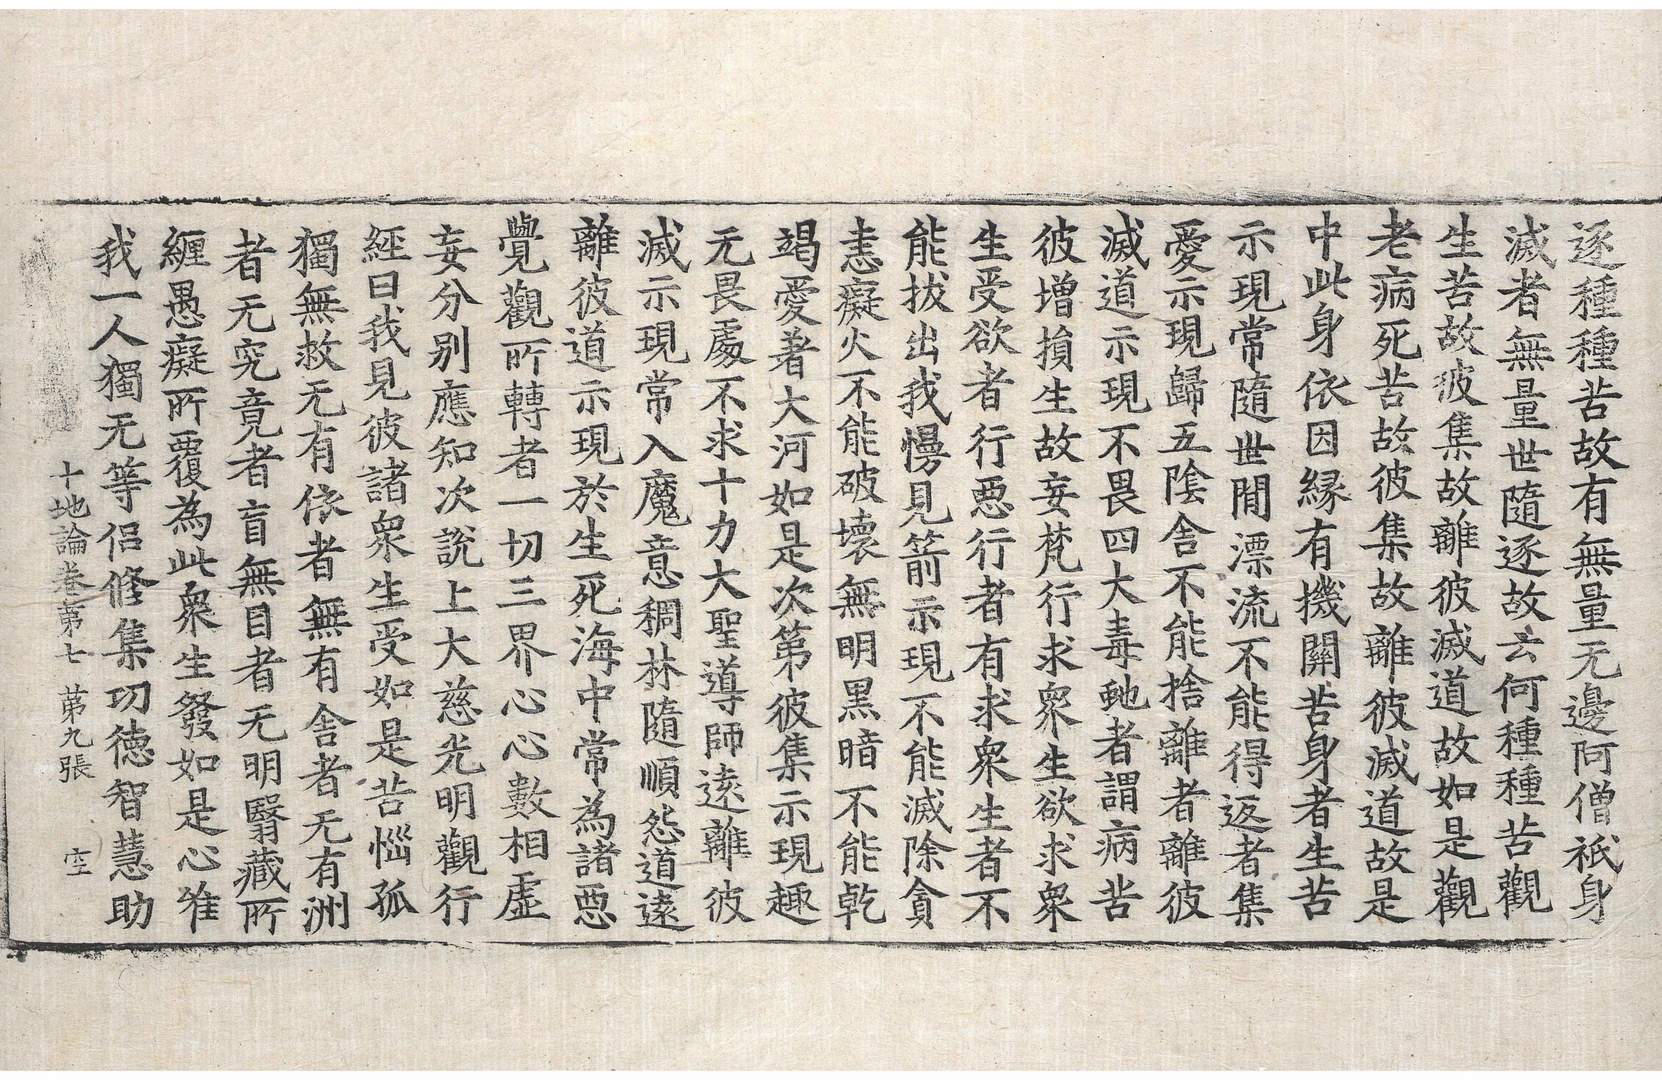 逐種種苦故有無量无邊阿僧祇身
滅者無量世隨逐故云何種種苦觀
生苦故彼集故離彼滅道故如是觀
老病死苦故彼集故離彼滅道故是
中此身依因緣有機關苦身者生苦
示現常隨世間漂流不能得返者集
愛示現歸五陰舍不能捨離者離彼
滅道示現不畏四大毒虵者謂病苦
彼增損生故妄梵行求衆生欲求衆
生受欲者行惡行者有求衆生者不
能拔出我慢見箭示現不能滅除貪
恚癡火不能破壞無明黑暗不能乾
竭愛著大河如是次第彼集示現趣
无畏處不求十力大聖導師遠離彼
滅示現常入魔意稠林隨順怨道遠
離彼道示現於生死海中常為諸惡
覺觀所轉者一切三界心心數相虛
妄分別應知次說上大慈光明觀行
經曰我見彼諸衆生受如是苦惱孤
獨無救无有依者無有舍者无有洲
者无究竟者盲無目者无明翳藏所
纏愚癡所覆為此衆生發如是心唯
我一人獨无等侣修集功德智慧助
十地論卷第七 第九張 空